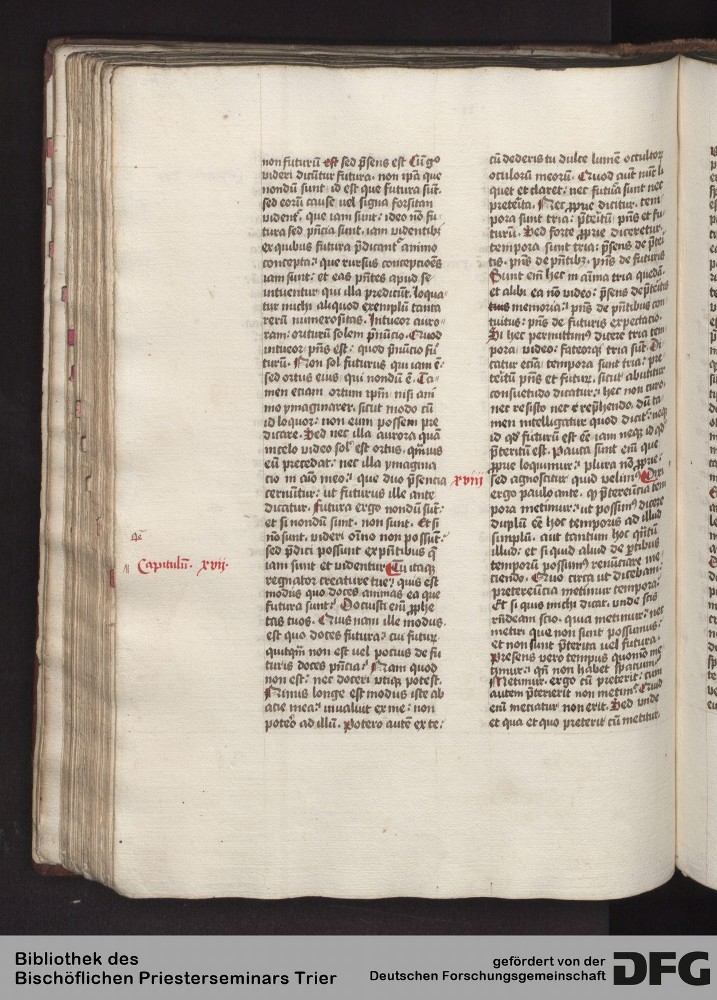 non futurū est sed p̄sens est Cū g̊
videri dicūtur futura. non ip̄a que
nondū sunt id est que futura sūt.
sed eorū cause vel signa forsitan
vident᷑. que iam sunt: ideo nō fu
tura sed pn̄cia sunt. iam videntibꝫ
ex quibus futura p̄dicant᷑ animo
concepta: que rursus conceptiões
iam sunt: et eas pn̄tes apud se
intuentur qui illa predicūt. loqua
tur michi aliquod exemplū tanta
rerū numerositas. Intueor auro
ram: oriturū solem p̄nūcio. Quod
intueor pn̄s est: quod p̄nūcio fu
turū. Non sol futurus qui iam ē:
sed ortus eius qui nondū ē. Ta
men etiam ortum ip̄m nisi ani
mo ymaginarer. sicut modo cū
id loquor: non eum possem pre
dicare. Sed nec illa aurora quā
in celo video sol᷑ est ortus. qm̄uis
eū precedat: nec illa ymagina
cio in aīo meo: que duo p̄sentia
cernūtur: ut futurus ille ante
dicatur. futura ergo nondū sūt:
et si nondū sunt. non sunt. Et si
nō sunt. videri oīno non possūt:
sed p̄dici possunt ex pn̄tibus q̄
iam sunt et videntur Tu itaqꝫ
Capitulū. xvij.
regnator creature tue: quis est
modus quo doces animas ea que
futura sunt: Docuisti em̄ ꝓphe
tas tuos. Quis nam ille modus.
est quo doces futura: cui futur᷑
quitqm̄ non est vel pocius de fu
turis doces pn̄cia: Nam quod
non est: nec doceri vtiqꝫ potest.
Nimis longe est modus iste ab
acie mea: inualuit ex me: non
poteo᷑ ad illū. Potero autē ex te:
cū dederis tu dulce lumē occultoꝝ
oculorū meorū. Quod aūt nūc li
quet et claret: nec futura sunt nec
preterita. Nec ꝓprie dicitur. tem
pora sunt tria: p̄teritū pn̄s et fu
turū. Sed forte ꝓprie diceretur.
tempora sunt tria: p̄sens de p̄teri
tis. pn̄s de pn̄tibꝫ. pn̄s de futuris
Sunt em̄ hec in aīma tria quedā.
et alibi ea nō video: p̄sens de p̄teritis
memoria: pn̄s de pn̄tibus con
tuitus: pn̄s de futuris expectacio.
Si hec permittim᷒ dicere tria tem
pora video: fateorqꝫ tria sūt. Di
catur etiā: tempora sunt tria: pre
teritū pn̄s et futur᷑. sicut abutitur
consuetudo dicatur: hec non curo.
nec resisto nec rep̄hendo. dū ta
men intelligatur quod dicit᷑: neqꝫ
id qd̓ futurū est eē iam neqꝫ id qd̓
p̄teritū est. Pauca sunt em̄ que
ꝓprie loquimur: plura nō ꝓprie:
sed agnoscitur quid velim᷒ Dixi
xviii
ergo pauloante. ꝙ p̄tereūcia tem
pora metimur: ut possim᷒ dicere
duplū eē hoc temporis ad illud
simplū. aut tantum hoc qn̄tū
illud: et si quid aliud de p̄tibus
temporū possum᷒ renūciare me
ciendo. Quo circa ut dicebam:
pretereūcia metimur tempora.
Et si quis michi dicat. vnde scis
rn̄deam scio. quia metimur: nec
metiri que non sunt possumus:
et non sunt p̄terita vel futura.
Presens vero tempus quomō me
timur: qn̄ non habet spacium:
Metimur. ergo cū preterit: cum
autem p̄terierit non metim᷒ Quid
em̄ meciatur non erit. Sed vnde
et qua et quo preterit cū metitur.
Bibliothek des
Bischöflichen Priesterseminars Trier
gefördert von der
Deutschen Forschungsgemeinschaft
DFG